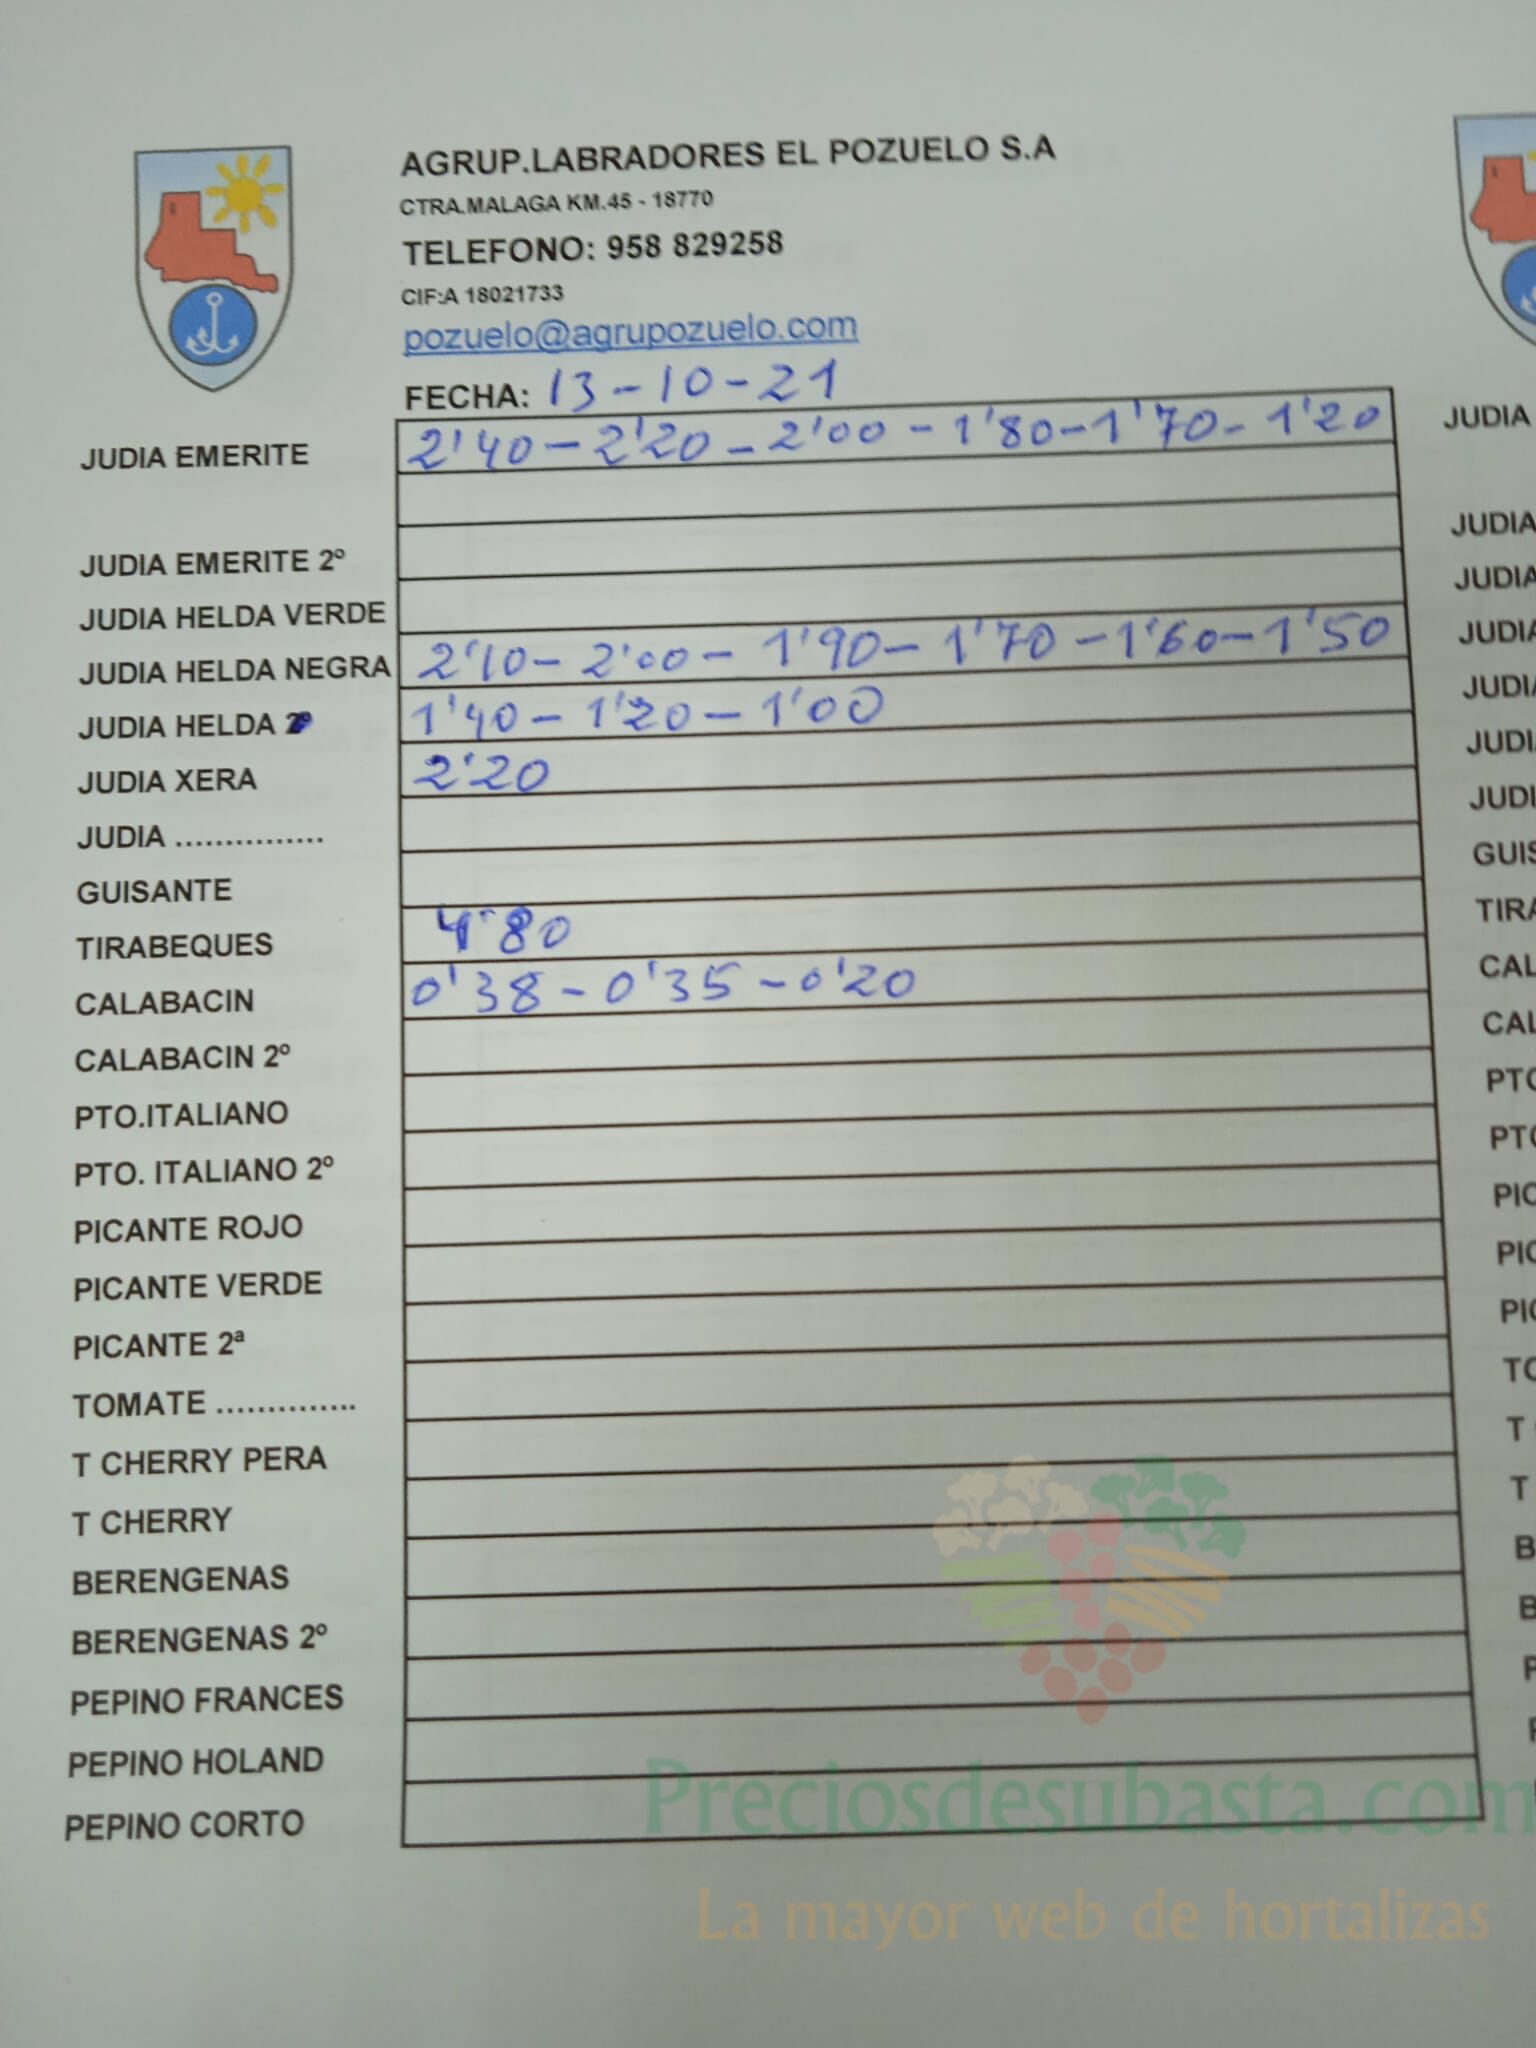 AGRUP.LABRADORES EL POZUELO S.A
CTRA.MALAGA KM.45 - 18770
TELEFONO: 958 829258
CIF:A 18021733
pozuelo@agrupozuelo.com
FECHA: 13-10-21
JUDIA EMERITE 2'40-2'20-2'00-1'80-1'70-1'20
JUDIA EMERITE 2º
JUDIA HELDA VERDE
JUDIA HELDA NEGRA 2'10-2'00-1'90-1'70-1'60-1'50
JUDIA HELDA 2º 1'40-1'20-1'00
JUDIA XERA 2'20
JUDIA ...............
GUISANTE
TIRABEQUES 4'80
CALABACIN 0'38-0'35-0'20
CALABACIN 2º
PTO.ITALIANO
PTO. ITALIANO 2º
PICANTE ROJO
PICANTE VERDE
PICANTE 2ª
TOMATE ..............
T CHERRY PERA
T CHERRY
BERENGENAS
BERENGENAS 2º
PEPINO FRANCES
PEPINO HOLAND
PEPINO CORTO
Preciosdesubasta.com
La mayor web de hortalizas
JUDIA
JUDIA
JUDIA